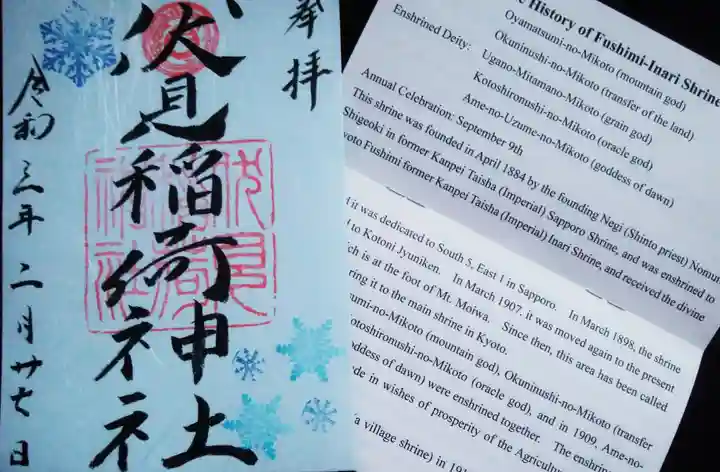 奉拝
伏見稲荷神社
令和三年二月廿七日
History of Fushimi-Inari Shrine
Enshrined Deity: Oyamatsumi-no-Mikoto (mountain god)
Okuninushi-no-Mikoto (transfer of the land)
Ugano-Mitamano-Mikoto (grain god)
Kotoshironushi-no-Mikoto (oracle god)
Ame-no-Uzume-no-Mikoto (goddess of dawn)
Annual Celebration: September 9th
This shrine was founded in April 1884 by the founding Negi (Shinto priest) Nomu
Shigeoki in former Kanpei Taisha (Imperial) Sapporo Shrine, and was enshrined to
yoto Fushimi former Kanpei Taisha (Imperial) Inari Shrine, and received the divine
it was dedicated to South 5, East 1 in Sapporo. In March 1898, the shrine
to Kotoni Jyuniken. In March 1907, it was moved again to the present
ich is at the foot of Mt. Moiwa. Since then, this area has been called
ring it to the main shrine in Kyoto.
umi-no-Mikoto (mountain god), Okuninushi-no-Mikoto (transfer
otoshiromushi-no-Mikoto (oracle god), and in 1909, Ame-no-
oddess of dawn) were enshrined together. The enshrin
de in wishes of prosperity of the Agricultu
a village shrine) in 19